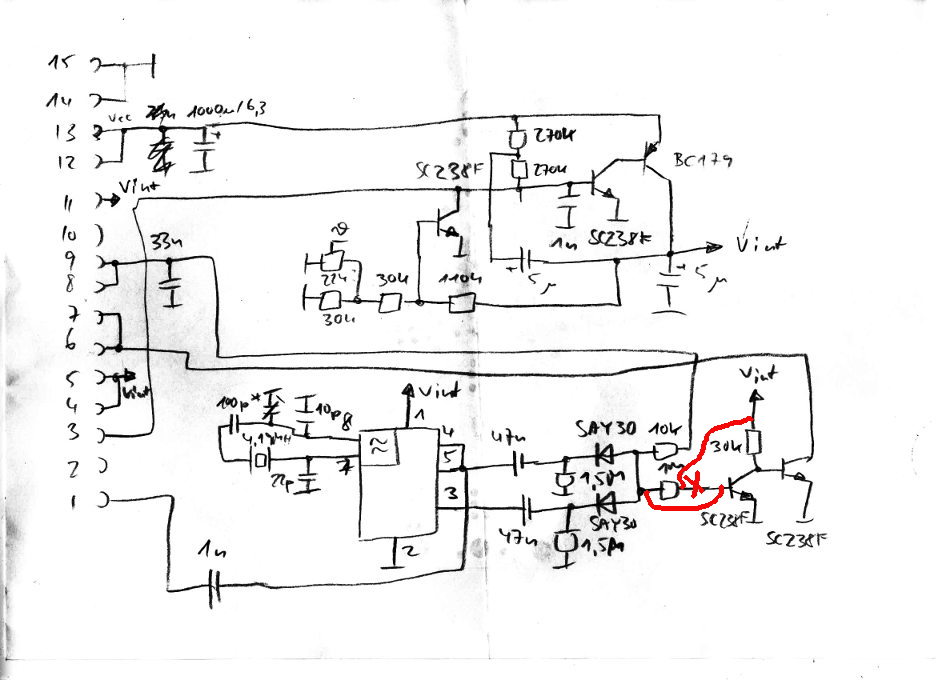 15
14
Vcc 1000µ/6,3
13
+
270k
12
270k
BC179
SC238F
11 Vint
10
33n
ϑ
1n SC238F
Vint
9
8
22k
30k
110k
+ 5µ
+ 5µ
30k
7
6
5
Vint
4
3
100p*
10p
8
Vint
1
Vint
4,19MH
≈
4
47n
SAY30
10k
30k
2
22p
7
5
1,5M
1M
X
1
3
SAY30
SC238F
2
47n
1,5M
SC238F
1n